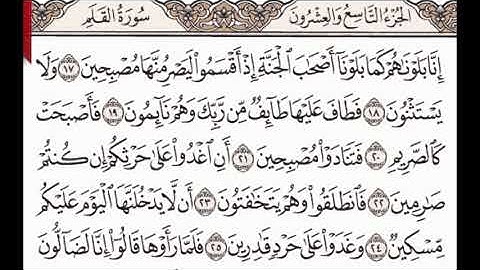 الجزء التاسع والعشرون
سورة القلم
إِنَّا بَلَوْنَٰهُمْ كَمَا بَلَوْنَآ أَصْحَٰبَ ٱلْجَنَّةِ إِذْ أَقْسَمُوا۟ لَيَصْرِمُنَّهَا مُصْبِحِينَ ١٧ وَلَا
يَسْتَثْنُونَ ١٨ فَطَافَ عَلَيْهَا طَآئِفٌ مِّن رَّبِّكَ وَهُمْ نَآئِمُونَ ١٩ فَأَصْبَحَتْ
كَٱلصَّرِيمِ ٢٠ فَتَنَادَوْا۟ مُصْبِحِينَ ٢١ أَنِ ٱغْدُوا۟ عَلَىٰ حَرْثِكُمْ إِن كُنتُمْ
صَٰرِمِينَ ٢٢ فَٱنطَلَقُوا۟ وَهُمْ يَتَخَٰفَتُونَ ٢٣ أَن لَّا يَدْخُلَنَّهَا ٱلْيَوْمَ عَلَيْكُم
مِّسْكِينٌ ٢٤ وَغَدَوْا۟ عَلَىٰ حَرْدٍ قَٰدِرِينَ ٢٥ فَلَمَّا رَأَوْهَا قَالُوٓا۟ إِنَّا لَضَآلُّونَ